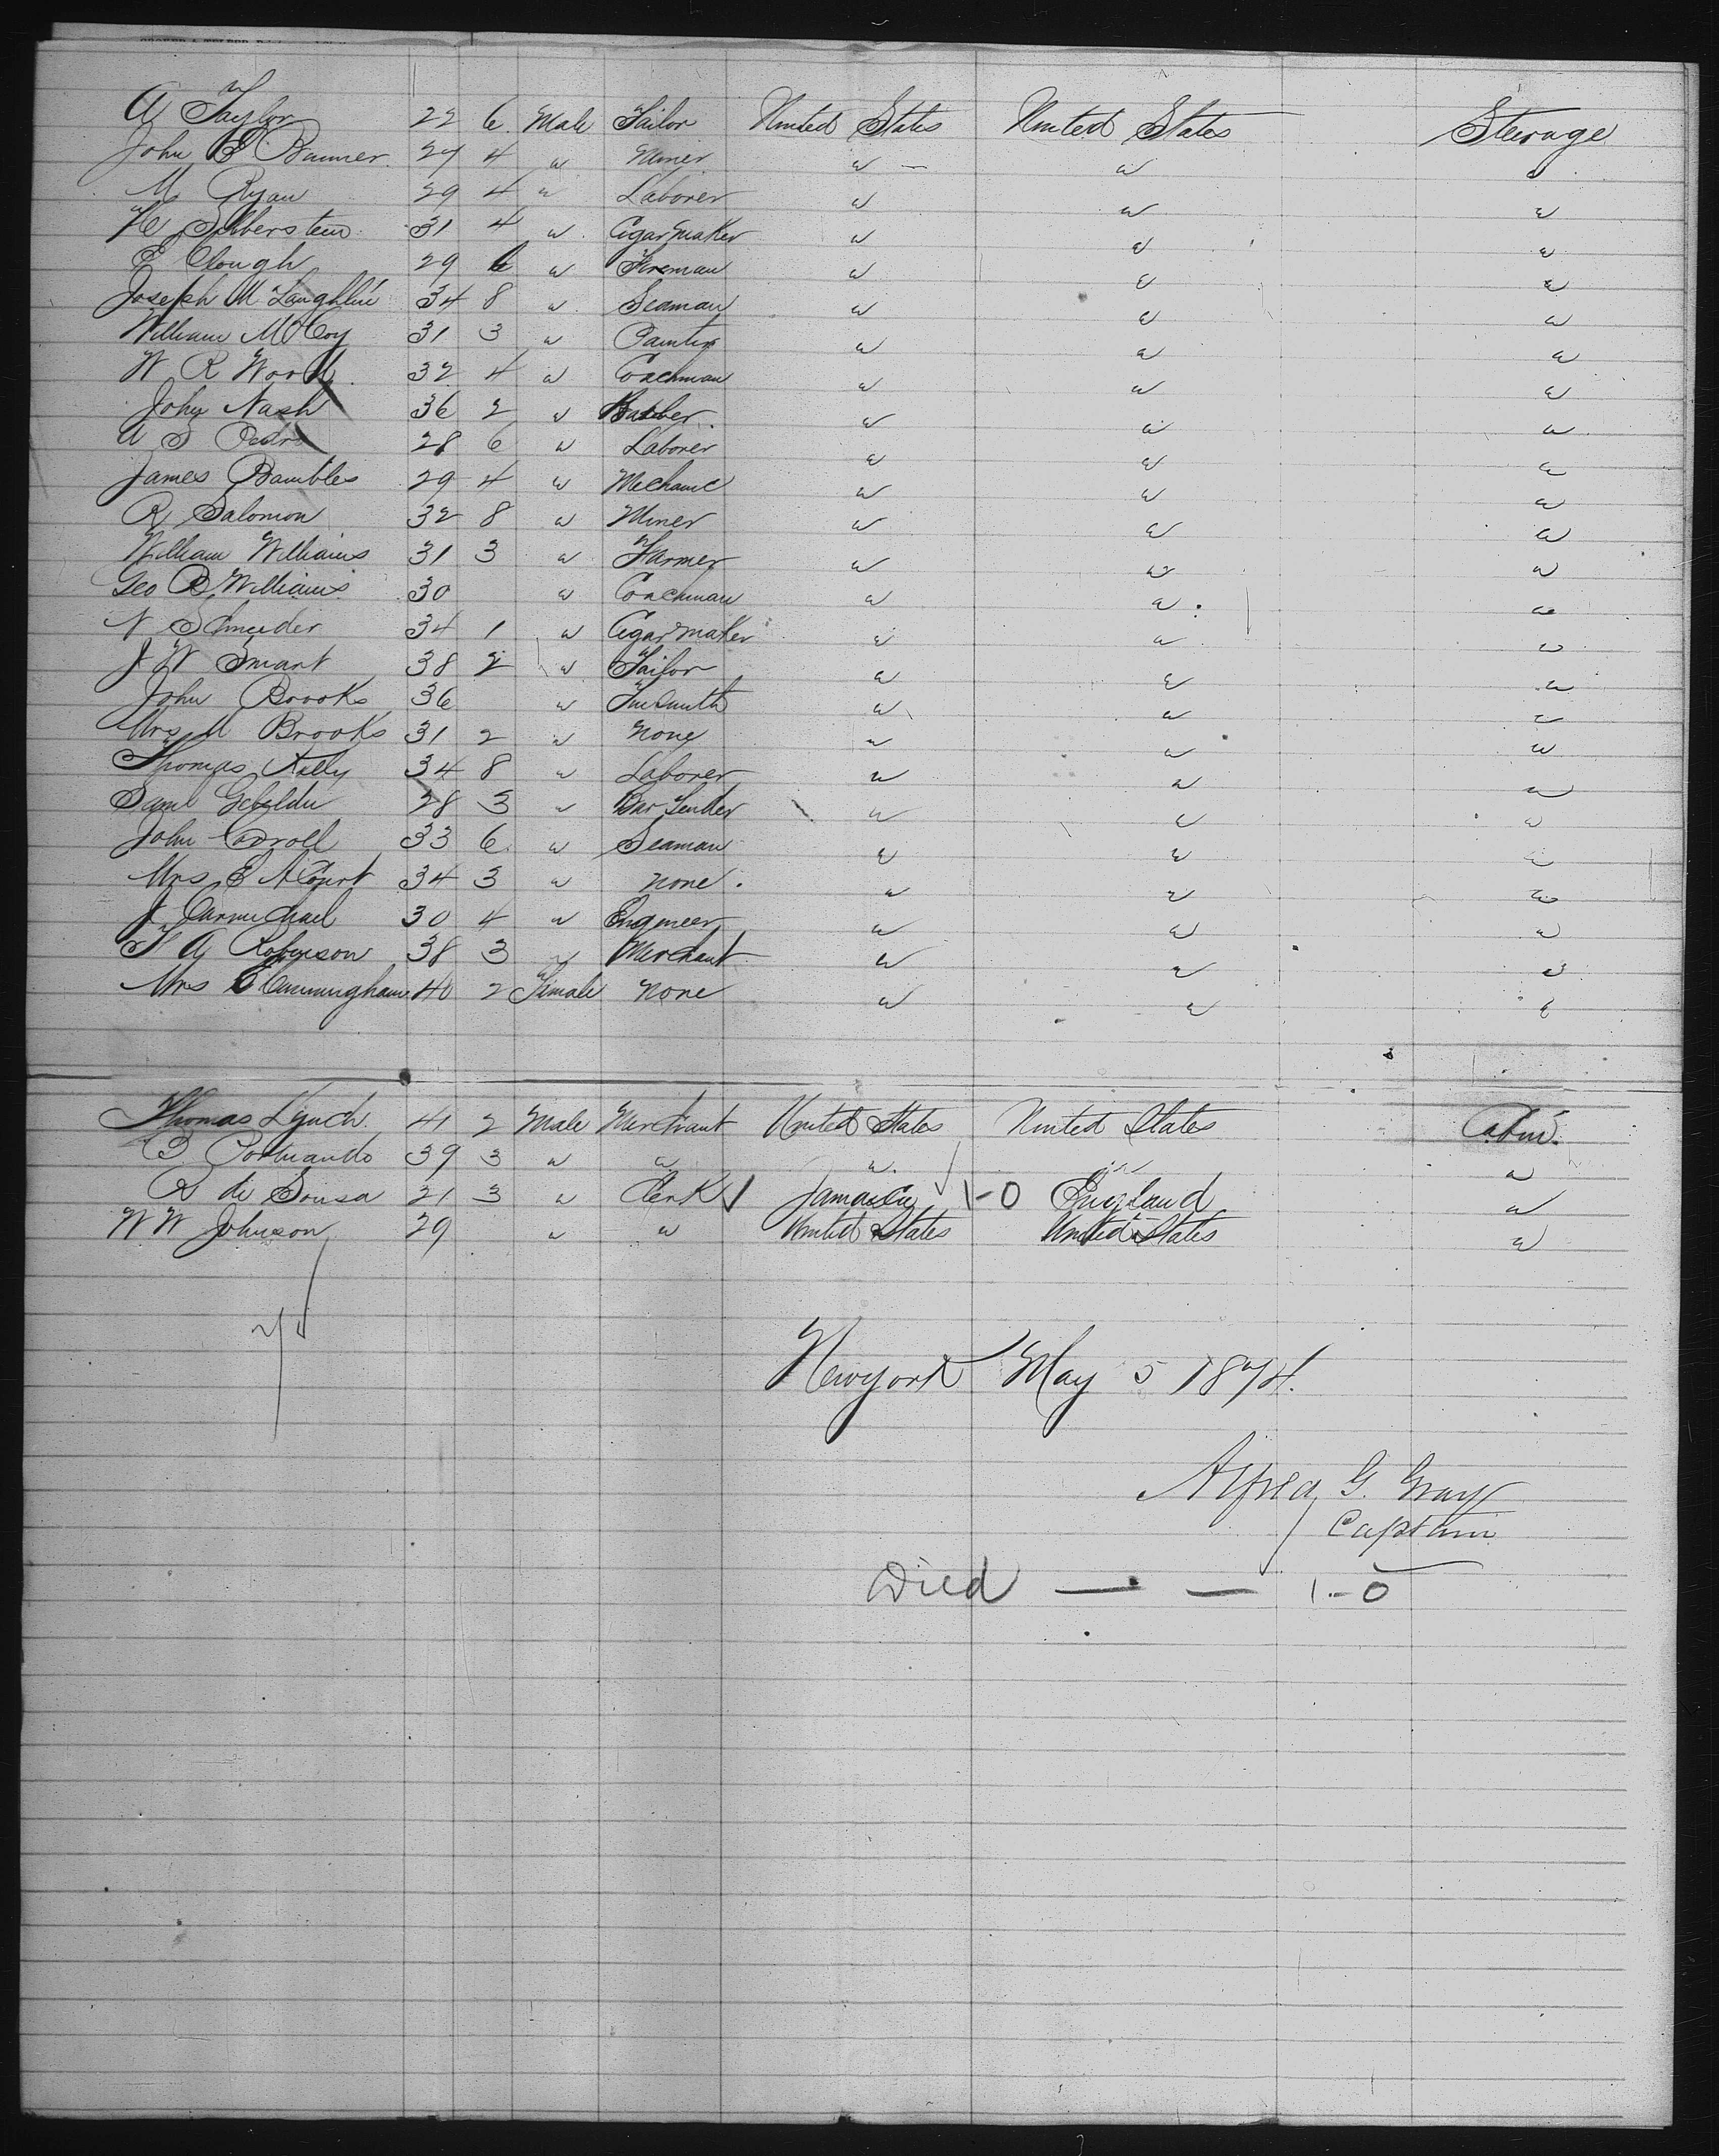 A Taylor 22 6 Male Tailor United States United States Steerage
John B Banner 27 4 " Miner " " "
M Ryan 29 4 " Laborer " " "
H Silberstein 31 4 " Cigar maker " " "
E Clough 29 6 " Fireman " " "
Joseph McLaughlin 34 8 " Seaman " " "
William McCoy 31 3 " Painter " " "
W R Wood 32 4 " Coachman " " "
John Nash 36 2 " Barber " " "
A S 28 6 " Laborer " " "
James Bambles 29 4 " Mechanic " " "
R Salomon 32 8 " Miner " " "
William Williams 31 3 " Farmer " " "
Geo B Williams 30 " Coachman " " "
N Schneider 34 1 " Cigar maker " " "
J W Smart 38 2 " Tailor " " "
John Brooks 36 " Tinsmith " " "
Mrs M Brooks 31 2 " None " " "
Thomas Kelly 34 8 " Laborer " " "
Saml 28 3 " Bar Tender " " "
John Carroll 33 6 " Seaman " " "
Mrs E A Court 34 3 " None " " "
J Carmichael 30 4 " Engineer " " "
F A Robinson 38 3 " Merchant " " "
Mrs E Cunningham 40 2 Female None " " "
Thomas Lynch 41 2 Male Merchant United States United States Cabin
B. Portuando 39 3 " " " " "
R de Sousa 21 3 " Clerk Jamaica 1-0 England "
W W Johnson 29 " " United States United States "
Newyork May 5 1874.
Alfred G. Gray
Captain
Died — — 1-0